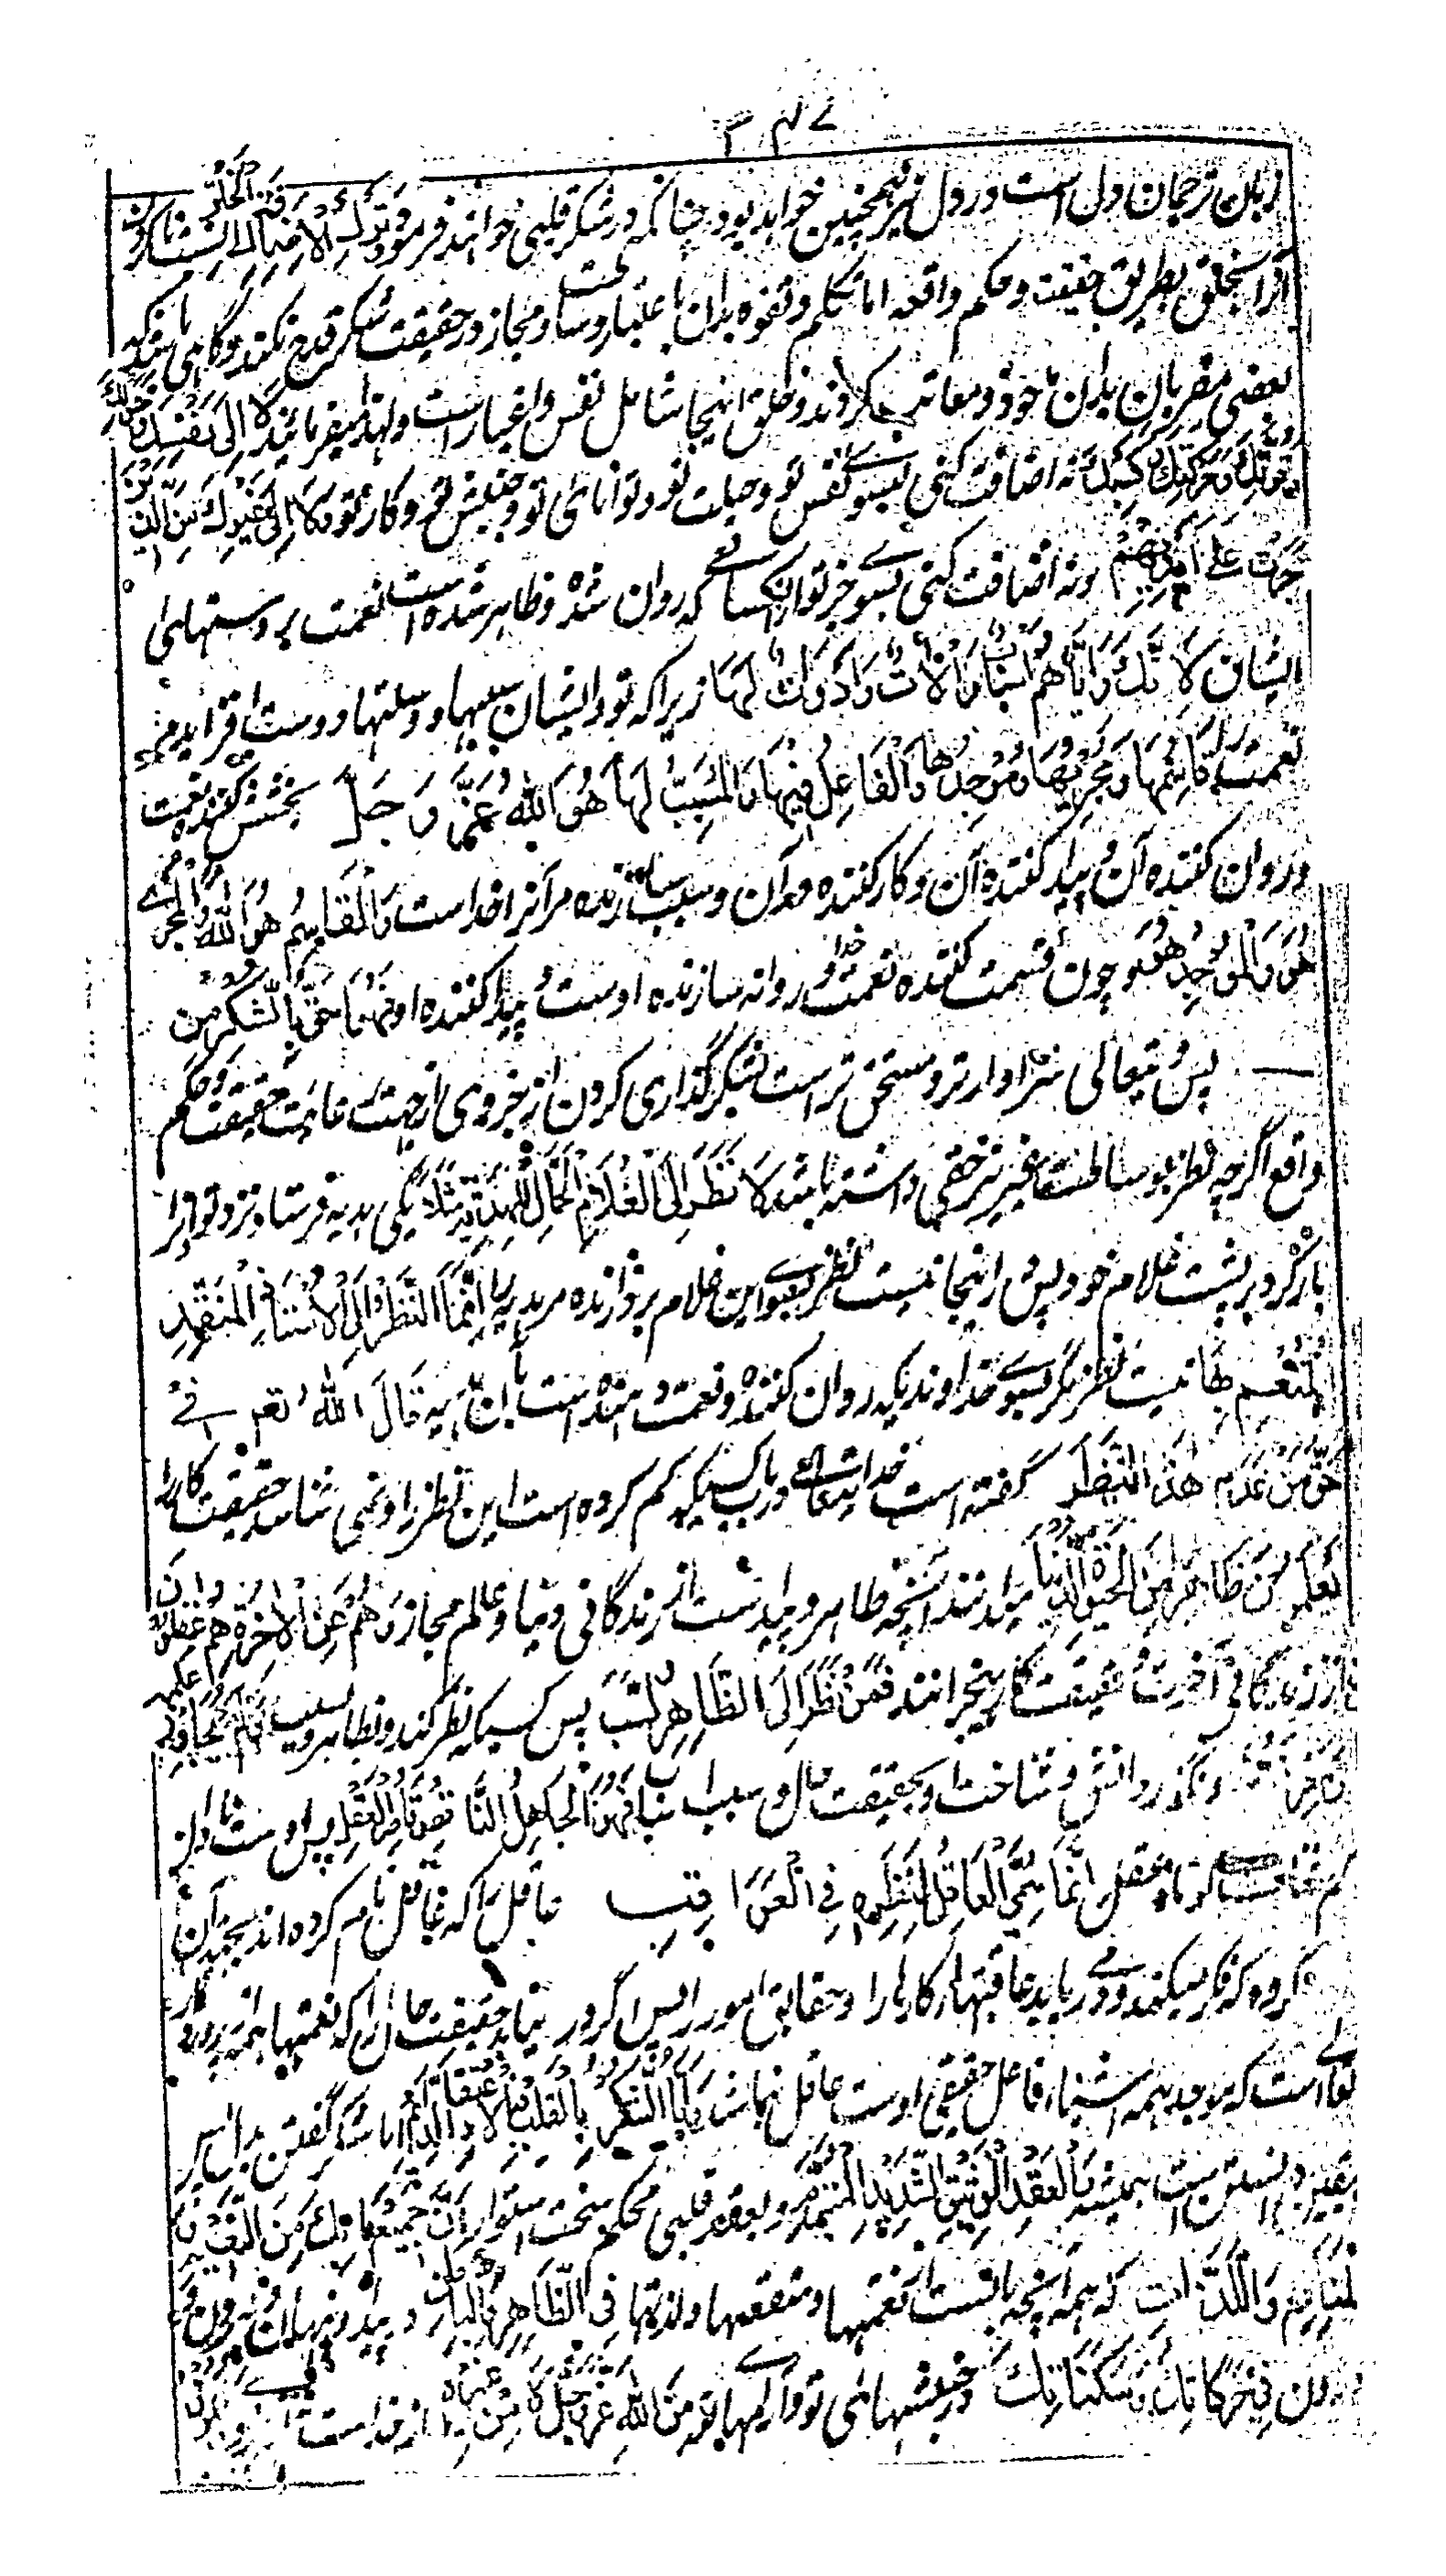 زبان ترجمان دل است و در دل نیز همچنین خواهد بود چنانکه در شکر قلبی خواهند فرمود و ترک الاضافة الی الخلق نسبت ناکردن
آنرا بخلق بطریق حقیقت و حکم واقعه اما تکلم و تفوه بدان باعتبار وسایط و مجاز در حقیقت شکر قدح نکند و گاهی باشد که
بعضی مقربان بدان ماخوذ و معاتب گردند و خلق اینجا شامل نفس و اغیار است و لهذا میفرمایند لا الی نفسک و حولک
و قوتک و حرکتک و کسبک نه اضافت کنی بسوے نفس تو و حیلت تو و توانائی تو و جنبش تو و کار تو و لا الی غیرک من الذین
جرت علی ایدیهم و نه اضافت کنی بسوے جز تو از کسانے که روان شده و ظاهر شده است نعمت بر دستهای
ایشان لانک و ایاهم اسباب و الات و ادوات لها زیرا که تو و ایشان سببها و وسیلتها و دست افزاید مر
نعمت را و ان قاسمها و مجریها و موجدها و الفاعل فیها و المسبب لها هو الله عز و جل بخشش کننده نعمت
و روان کننده آن و پیدا کننده آن و کار کننده در آن و سبب سازنده مر آنرا خداست و القاسم هو الله و المجری
هو و الموجد هو و چون قسمت کننده نعمت خدا و روانه سازنده اوست و پیدا کننده او فهو احق بالشکر من
پس وی تعالی سزاوارتر و مستحق تر است بشکر گذاری کردن از جز وی از جهت غایت حقیقت و حکم
واقع اگرچه نظر بوساطت غیر نیز حقی داشته باشد لا نظر الی الغلام الحمال للهدیة مثلا یکی هدیه فرستاد نزد تو و آنرا
بار کرد بر پشت غلام خود پس اینجا نیست نظر بسوے این غلام بردارنده مر هدیه را انما النظر الی الاستاذ المنفذ
المنعم بها نیست نظر مگر بسوے خداوند یکه روان کننده و نعمت دهنده است بآن هدیه قال الله تعم فے
حق من عدم هذا النظر گفته است خدایتعالے در باب کسیکه کم کرده است این نظر را و نمی شناسد حقیقت کار را
یعلمون ظاهرا من الحیوة الدنیا میدانند آنچه ظاهر و پیداست از زندگانی دنیا و عالم مجاز و هم عن الاخرة هم غفلون
و از زندگانی آخرت و حقیقت کار بیخبرانند فمن نظر الی الظاهر و السبب پس کسیکه نظر کند بظاهر و سبب و لم یجاوز علمه
و نگذرد دانش و شناخت او بحقیقت حال و سبب اسباب فهو الجاهل الناقص قاصر العقل پس اوست نادان
کم شناخت کوتاه عقل انما سمی العاقل لنظره فی العواقب عاقل را که عاقل نام کرده اند بجهت آن
کرده که فکر میکند و در یابد عاقبتهای کارها را و حقایق امور را پس اگر در نیابد حقیقت حال را که نعمتها همه پروردگار
تعالے است که موجد همه اشیاء و فاعل حقیقی اوست عاقل نباشد و اما الشکر بالقلب فبالاعتقاد الدائم اما شکر گفتن بدل پس
یقین دانستن است همیشه و العقد الوثیق الشدید المتبرم و بعقد قلبی محکم و سخت استوار ان جمیع ما بک من النعم
و المنافع و اللذات که همه آنچه با تست از نعمتها و منفعتها و لذتها فی الظاهر و الباطن در پیدا و نهان
فی حرکاتک و سکناتک و جنبشهای تو و آرامهای تو من الله عز و جل لا من غیره از خداست